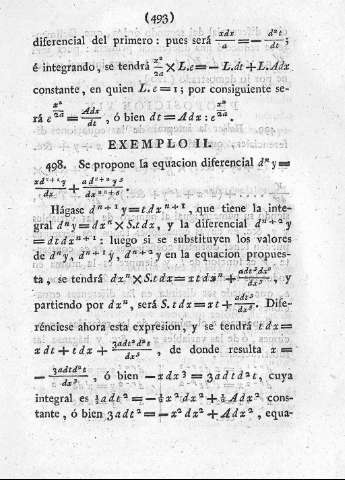 (493)
diferencial del primero: pues será xdx/a = — d²t/dt ;
é integrando, se tendrá x²/2a × L.e = — L.dt + L.Adx
constante, en quien L.e = 1; por consiguiente se-
rá e^(x²/2a) = Adx/dt , ó bien dt = Adx : e^(x²/2a).
EXEMPLO II.
498. Se propone la equacion diferencial dⁿy =
xdⁿ⁺¹y/dx + adⁿ⁺²y³/dxⁿ⁺⁶ .
Hágase dⁿ⁺¹y = tdxⁿ⁺¹, que tiene la inte-
gral dⁿy = dxⁿ × S.tdx, y la diferencial dⁿ⁺²y
= dtdxⁿ⁺¹: luego si se substituyen los valores
de dⁿy, dⁿ⁺¹y, dⁿ⁺²y en la equacion propues-
ta, se tendrá dxⁿ × S.tdx = xtdxⁿ + adt³dxⁿ/dx³ , y
partiendo por dxⁿ, será S.tdx = xt + adt³/dx³ . Dife-
rénciese ahora esta expresion, y se tendrá tdx =
xdt + tdx + 3adt²d²t/dx³ , de donde resulta x =
— 3adtd²t/dx³ , ó bien — xdx³ = 3adtd²t, cuya
integral es ½adt² = — ½x²dx² + ½Adx² cons-
tante, ó bien 3adt² = — x²dx² + Adx² , equa-